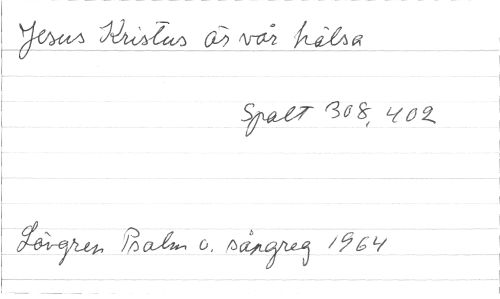 Jesus Kristus är vår hälsa
Spalt 308, 402
Lövgren Psalm o. sångreg 1964